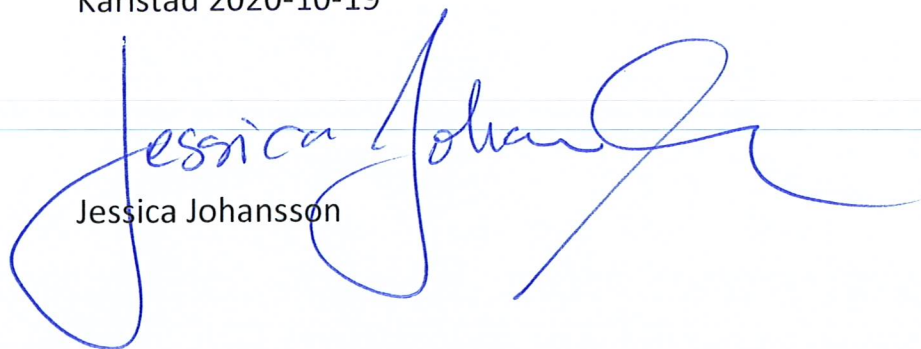 Karlstad 2020-10-19
Jessica Johansson
Jessica Johansson